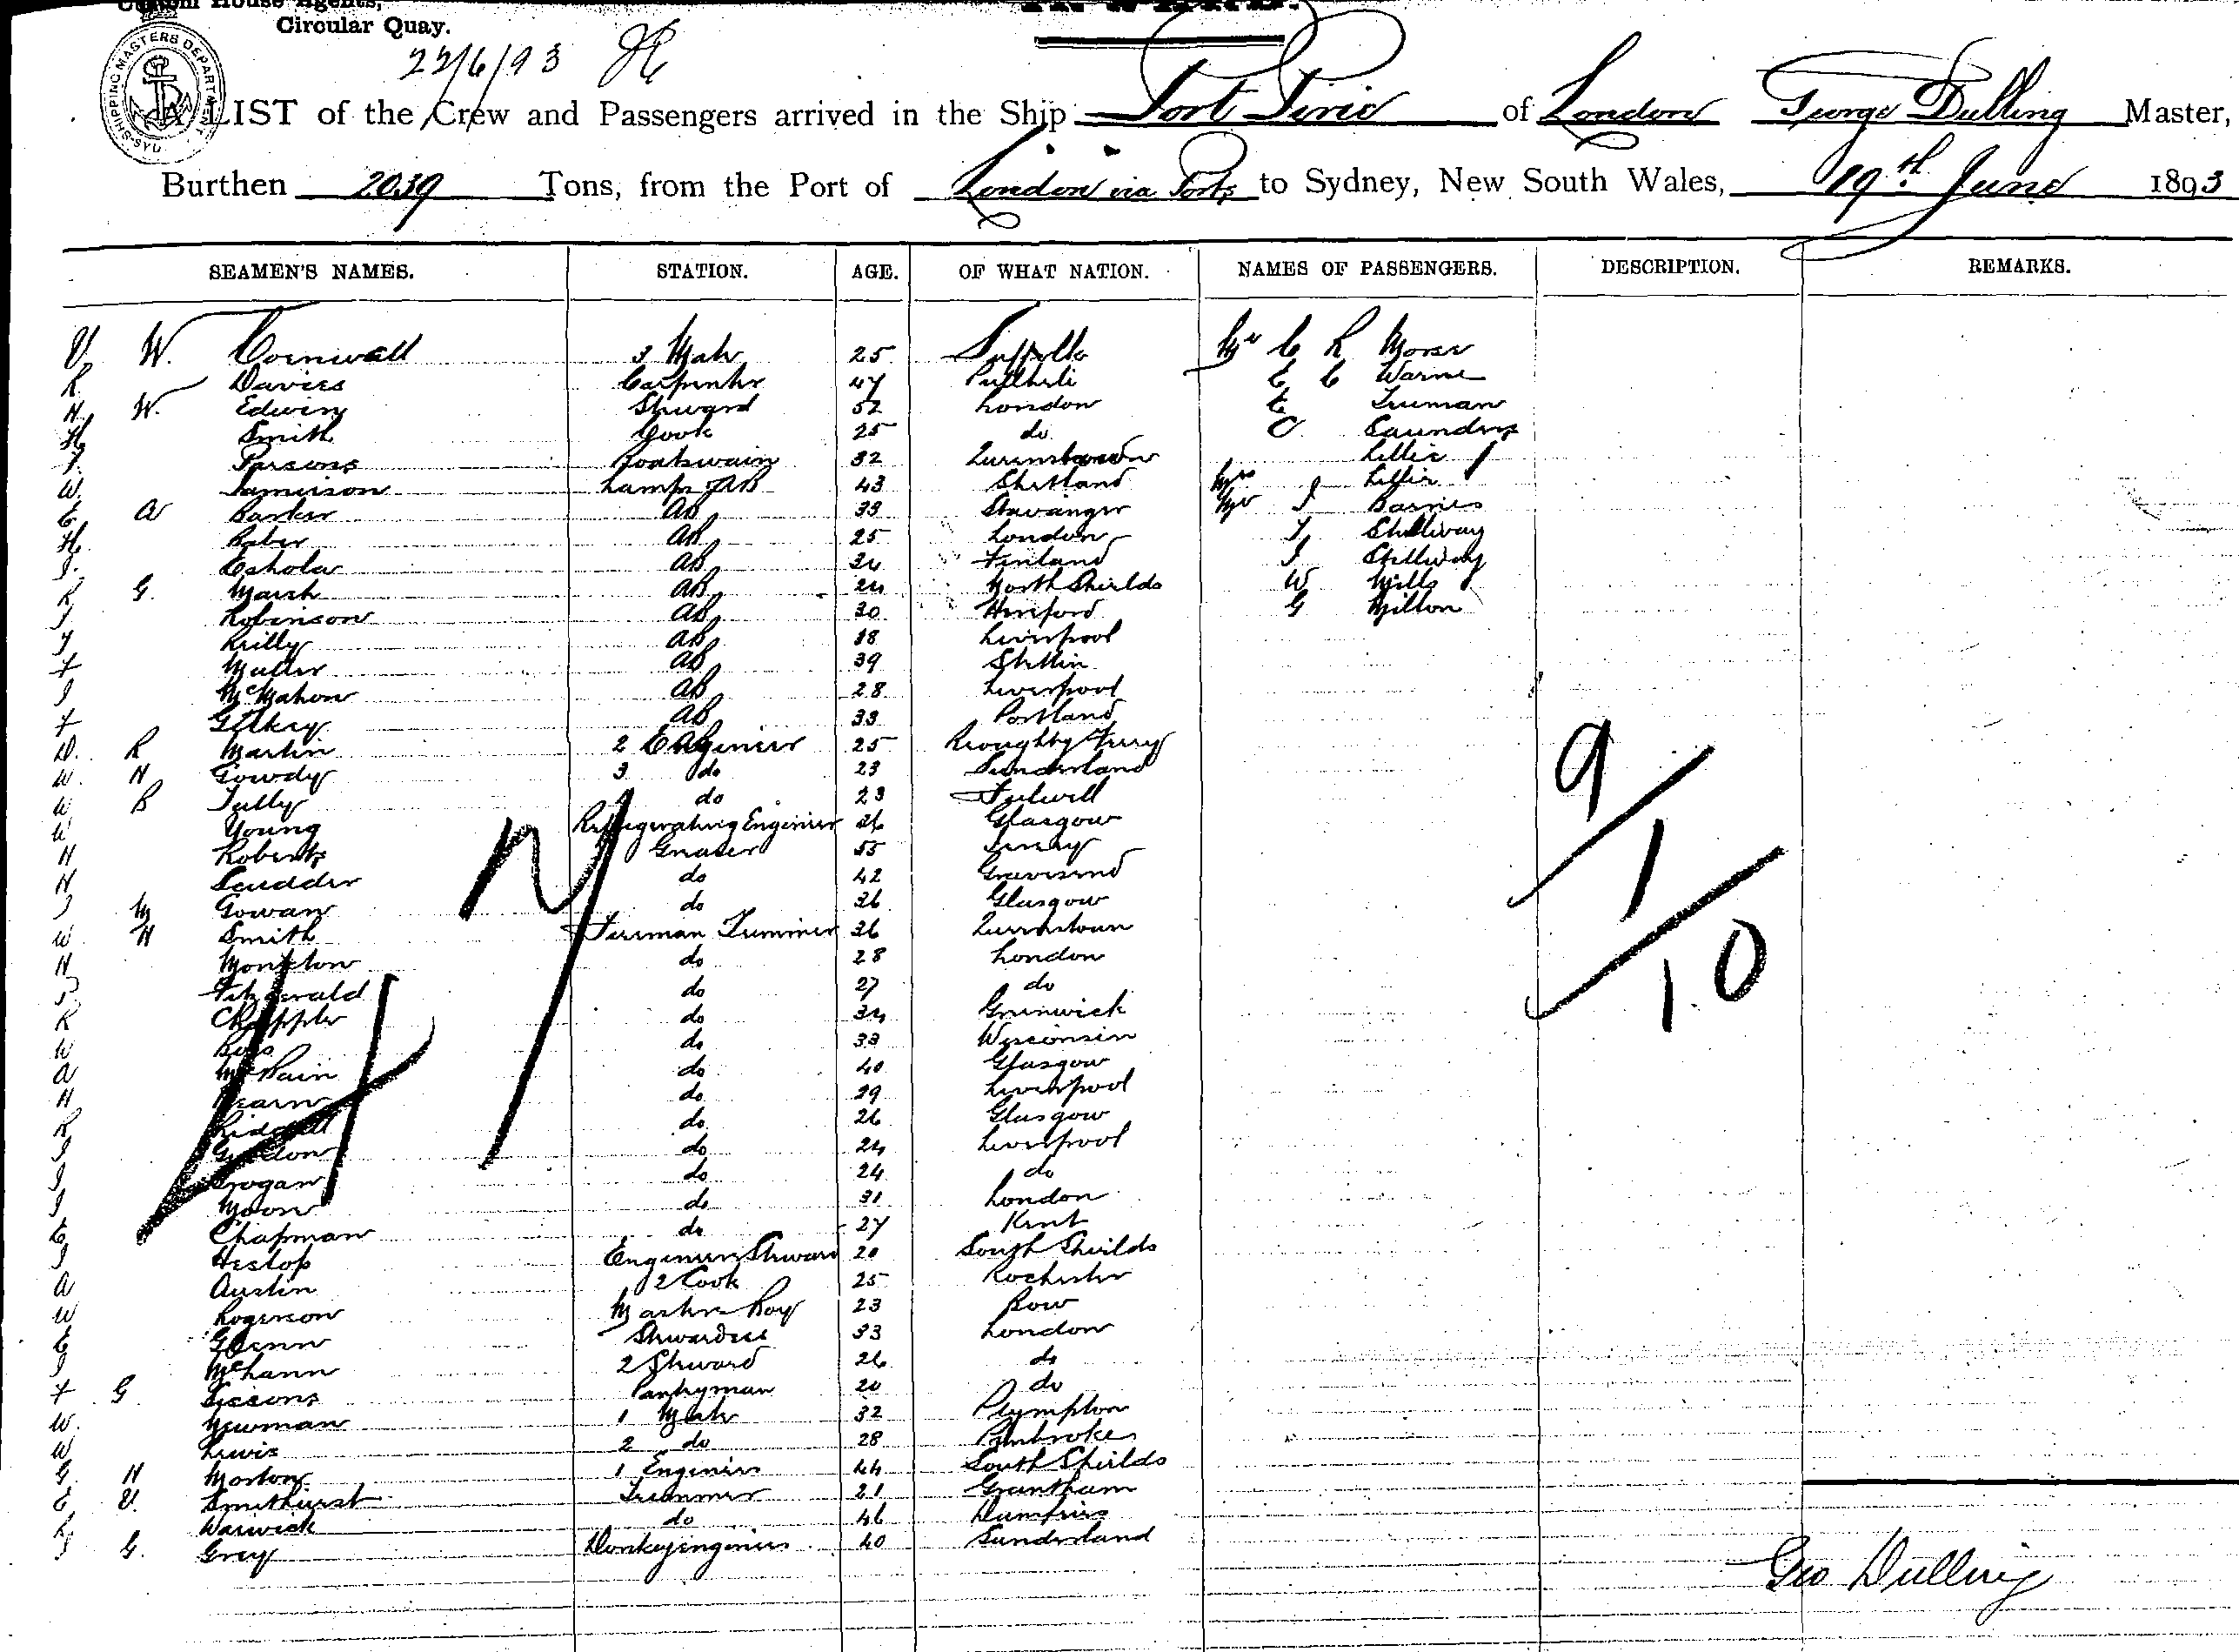 Custom House Agents,
Circular Quay.
22/6/93
SHIPPING MASTERS DEPARTMENT SYD
LIST of the Crew and Passengers arrived in the Ship Port Pirie of London George Dulling Master,
Burthen 2039 Tons, from the Port of London via Ports to Sydney, New South Wales, 19th June 1893
SEAMEN'S NAMES. STATION. AGE. OF WHAT NATION. NAMES OF PASSENGERS. DESCRIPTION. REMARKS.
V. W. Cornwall 3 Mate 25 Suffolk Mr C R Morse
R Davies Carpenter 47 Pullheli E C Warne
H. W. Edwin Steward 52 London E Truman
H. Smith Cook 25 do C Saunders
J. Parsons Boatswain 32 Queenstown Lillie
W. Jamieson Lamps AB 43 Shetland Mrs J Lillie
C A Barker AB 33 Stavanger Mr J Barnes
H. Baber AB 25 London T Shellway
J. Eshola AB 34 Finland J Shellway
R G. Marsh AB 24 North Shields W Mills
J Robinson AB 30 Hereford G Milton
J Reilly AB 38 Liverpool
F Muller AB 39 Stettin
J McMahon AB 28 Liverpool
F Gilkey AB 33 Portland
D. R Martin 2 Engineer 25 Broughty Ferry
W. H Gowdy 3 do 23 Sunderland
W B Tully do 23 Fulwell
W Young Refrigerating Engineer 26 Glasgow
H Roberts Greaser 55
H Scudder do 42 Gravesend
J M Gowan do 36 Glasgow
W H Smith Fireman Trimmer 36 Queenstown
H Monkton do 28 London
Fitzgerald do 27 do
R Chappler do 34 Greenwich
W do 33 Wisconsin
A McBain do 40 Glasgow
H Hearn do 29 Liverpool
R do 26 Glasgow
J do 24 Liverpool
J Grogan do 24 do
J Moon do 31 London
E Chapman do 27 Kent
J Heslop Engineers Steward 20 South Shields
A Austin 2 Cook 25 Rochester
W Rogerson Mess Room Boy 23 Bow
E Glenn Stewardess 33 London
J McCann 2 Steward 26 do
F G. Sissons Pantryman 20 do
W. Newman 1 Mate 32 Plympton
W Lewis 2 do 28 Pembroke
G. H Morton 1 Engineer 44 South Shields
E V. Smithurst Trimmer 21 Grantham
R Warwick do 46 Dumfries
J G. Grey Donkey engineer 40 Sunderland
9/1/10
Geo Dulling